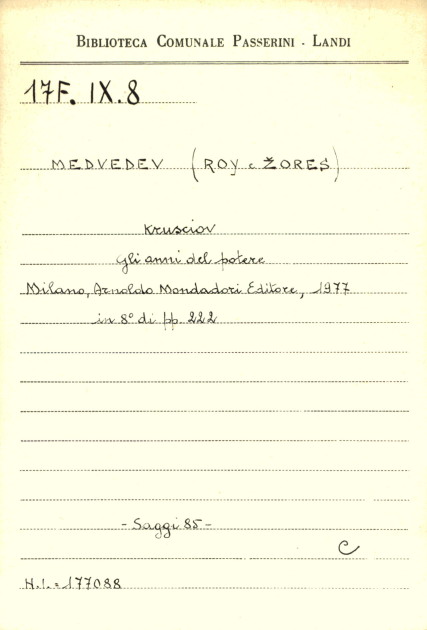 BIBLIOTECA COMUNALE PASSERINI - LANDI
17F. IX. 8
MEDVEDEV (ROY e ŽORES)
Krusciov
gli anni del potere
Milano, Arnoldo Mondadori Editore, 1977
in 8° di pp. 222
- Saggi 85 -
C
N.I. = 177088